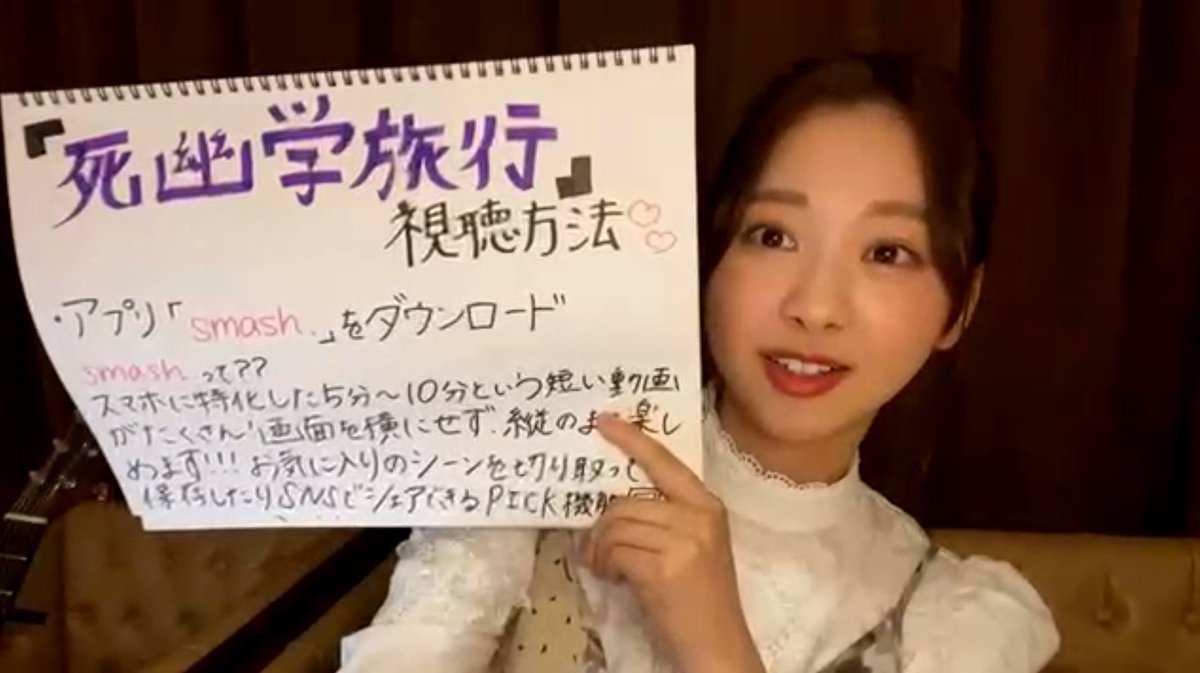 『死幽学旅行』
視聴方法♡♡
・アプリ「smash.」をダウンロード
smashって??
スマホに特化した5分〜10分という短い動画
がたくさん!画面を横にせず、縦のまま楽し
めます!!!お気に入りのシーンを切り取って
保存したりSNSでシェアできるPICK機能